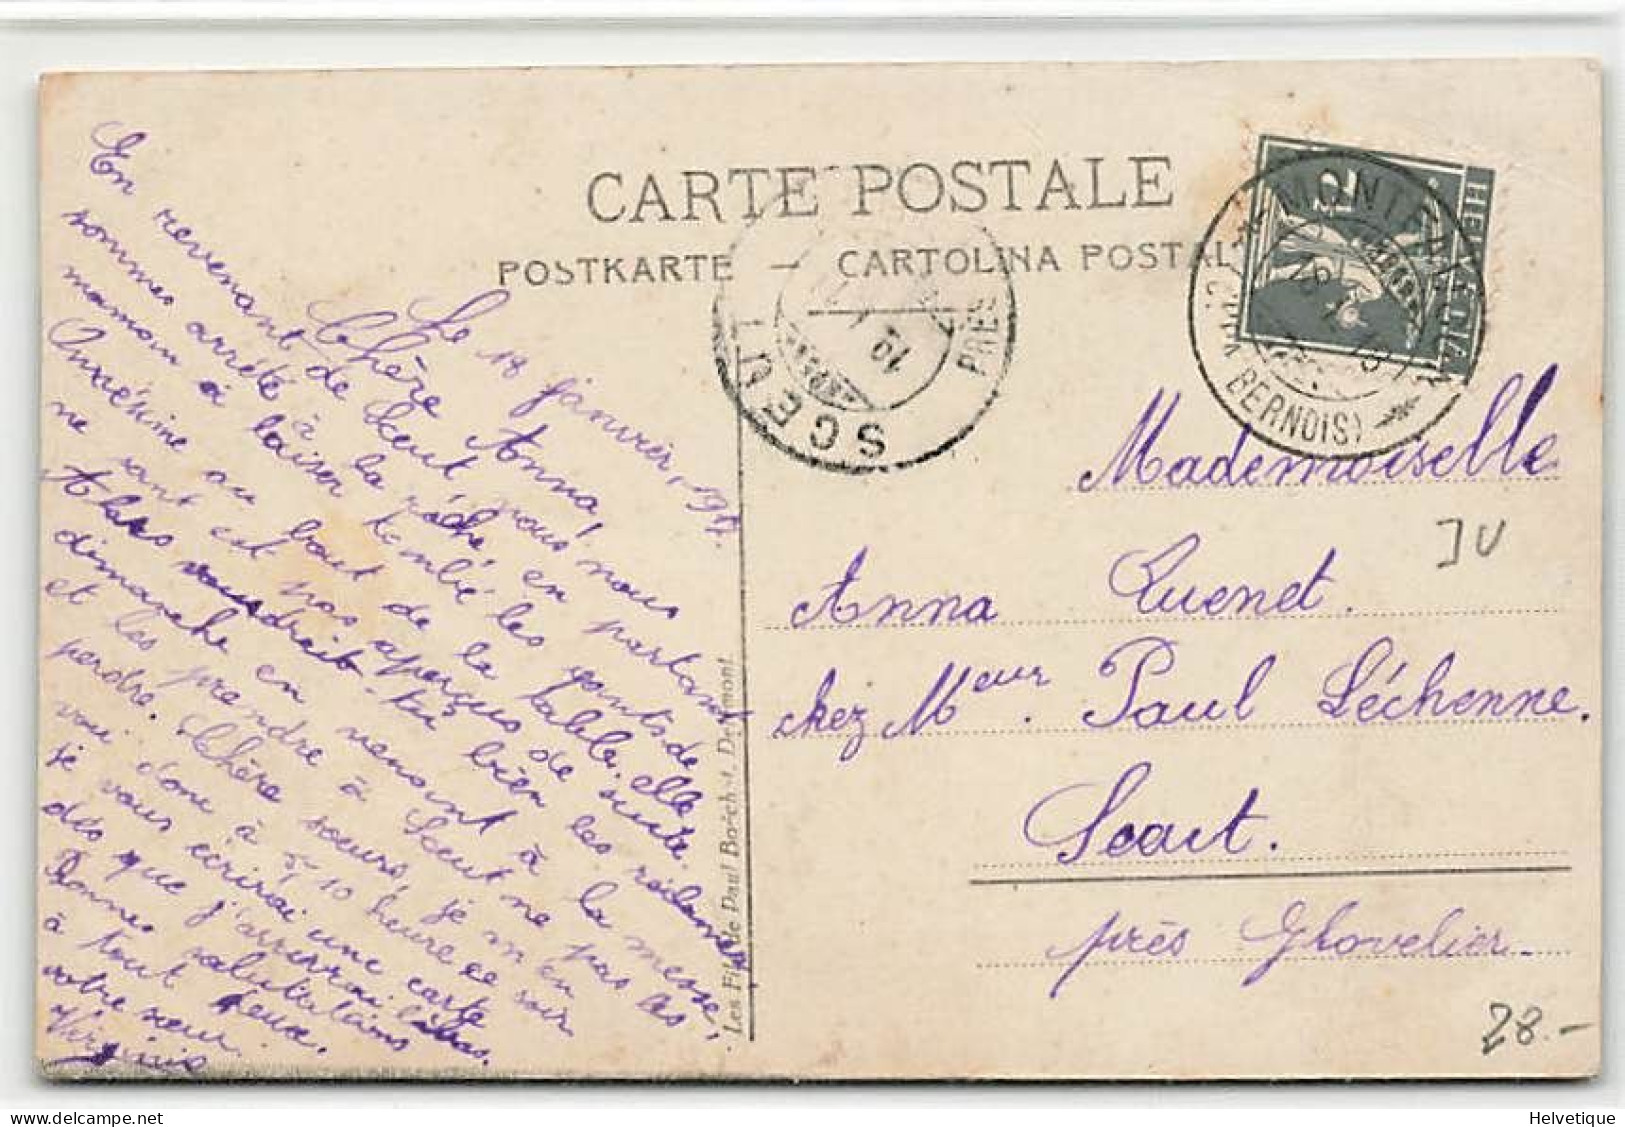 CARTE POSTALE
POSTKARTE — CARTOLINA POSTAL
Le 18 janvier, 19
Chère Anna,
En revenant de Sceut nous nous
sommes arrêté à la roche, en partant
maman à laiser tombé les gants de
au bout de la table, elle
ne sont est pas aperçus de suite.
Alors voudrait-tu bien les réclamer
dimanche en venant à la messe,
et les prendre à Sceut ne pas les
perdre. Chère sœurs, je m'en
vai donc à 5 h 10 heure ce soir
je vous écrirai une carte
dès que j'arrivrai là-bas.
Bonnes salutations
à tout deux.
votre sœur.
Virginie
Les Fils de Paul Bœchat, Delémont.
SCEUT
PRÈS
HELVETIA
2
MONTF
(JURA BERNOIS)
Mademoiselle
JU
Anna Cuenet.
chez Meur. Paul Léchenne.
Sceut.
près Glovelier.
28.-
Helvetique